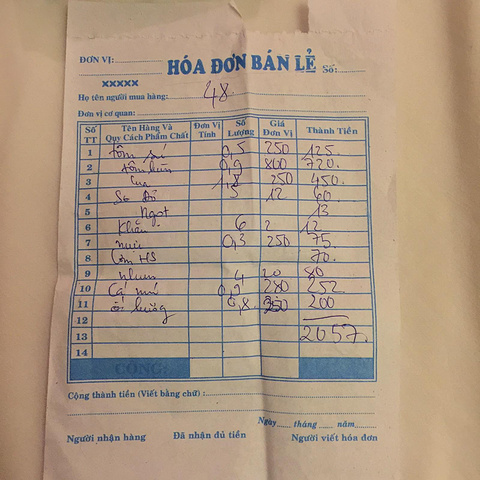 ĐƠN VỊ:
HÓA ĐƠN BÁN LẺ Số:
XXXXX
Họ tên người mua hàng: 48
Đơn vị cơ quan:
Số TT Tên Hàng Và Quy Cách Phẩm Chất Đơn Vị Tính Số Lượng Giá Đơn Vị Thành Tiền
1 tôm sú 0,5 250 125.
2 tôm hùm 0,9 800 720.
3 Cua 1,8 250 450.
4 Sò 5 12 60
5 Ngọt 13
6 Khăn 6 2 12
7 mực 0,3 250 75
8 Cơm HS 70.
9 Nhum 4 20 80
10 Cá mú 0,9 280 252
11 0,8. 250 200
12
13 2057.
14
CỘNG:
Cộng thành tiền (Viết bằng chữ):
Ngày tháng năm
Người nhận hàng Đã nhận đủ tiền Người viết hóa đơn